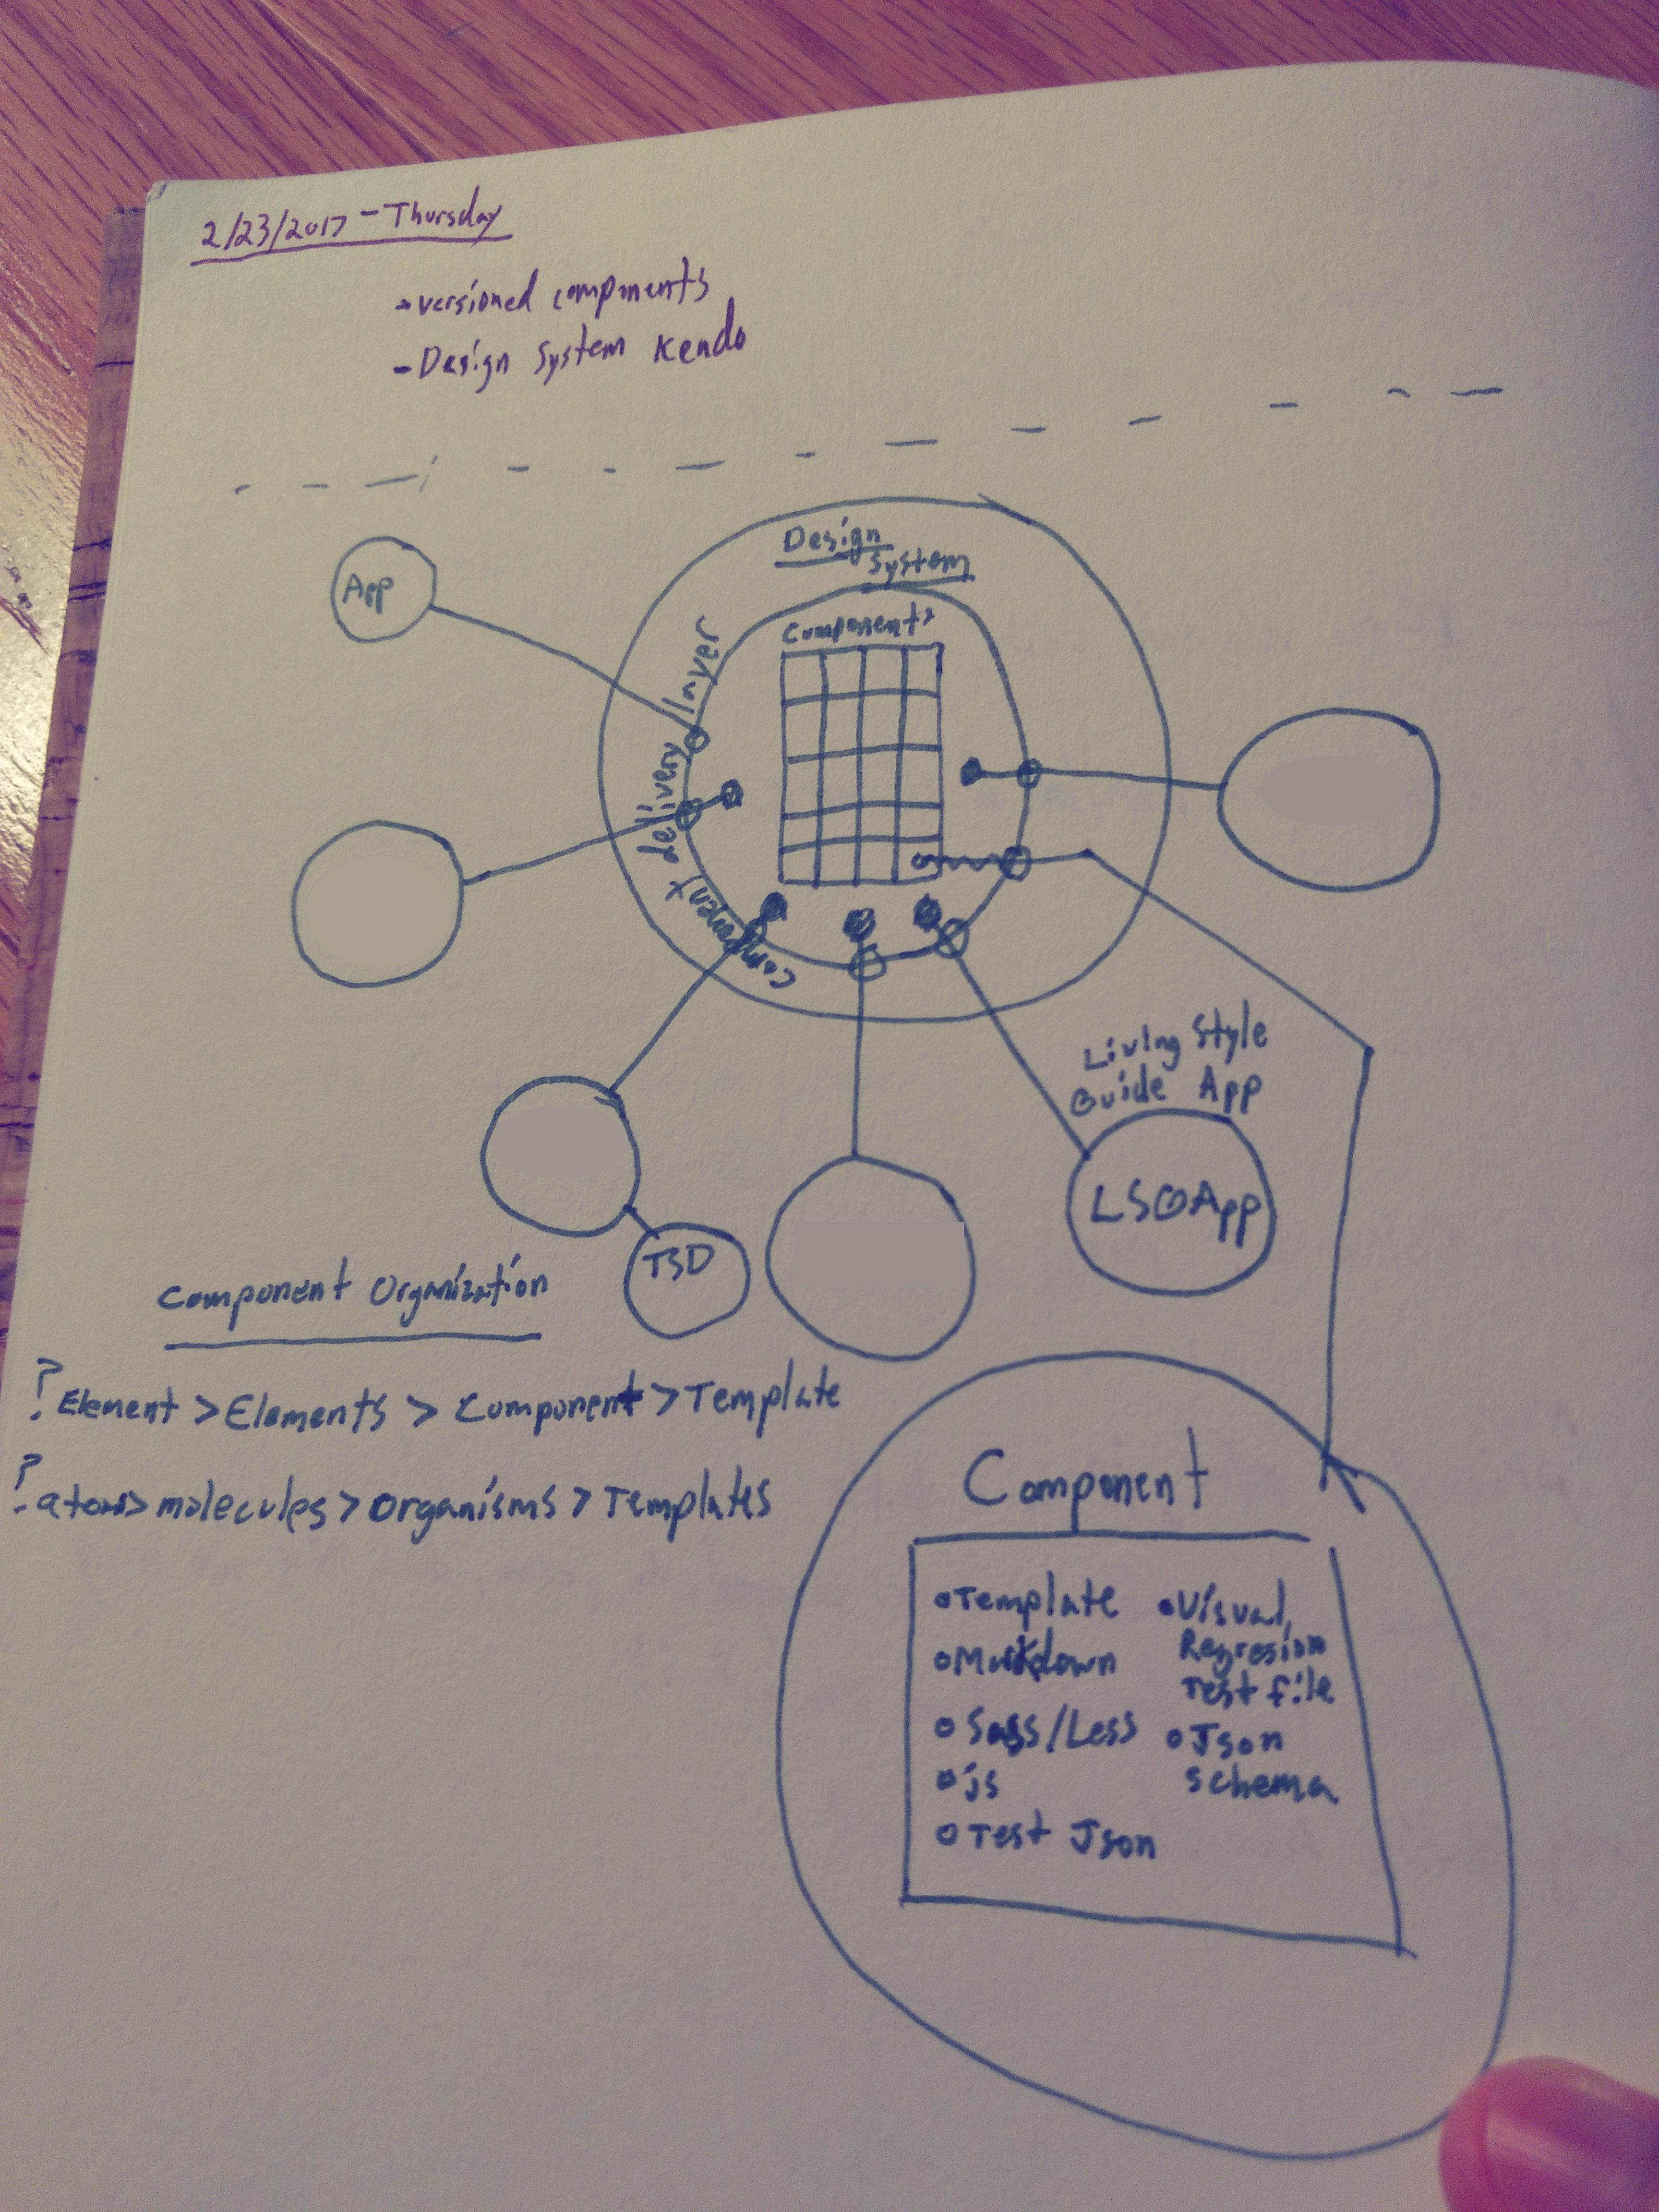 2/23/2017 - Thursday
- versioned components
- Design System Kendo
Design
System
App
Components
component delivery layer
Living Style
Guide App
LSGApp
TSD
Component Organization
? Element > Elements > Component > Template
? atoms > molecules > organisms > Templates
Component
Template
Markdown
Sass/Less
js
Test Json
Visual
Regresion
Test file
Json
schema